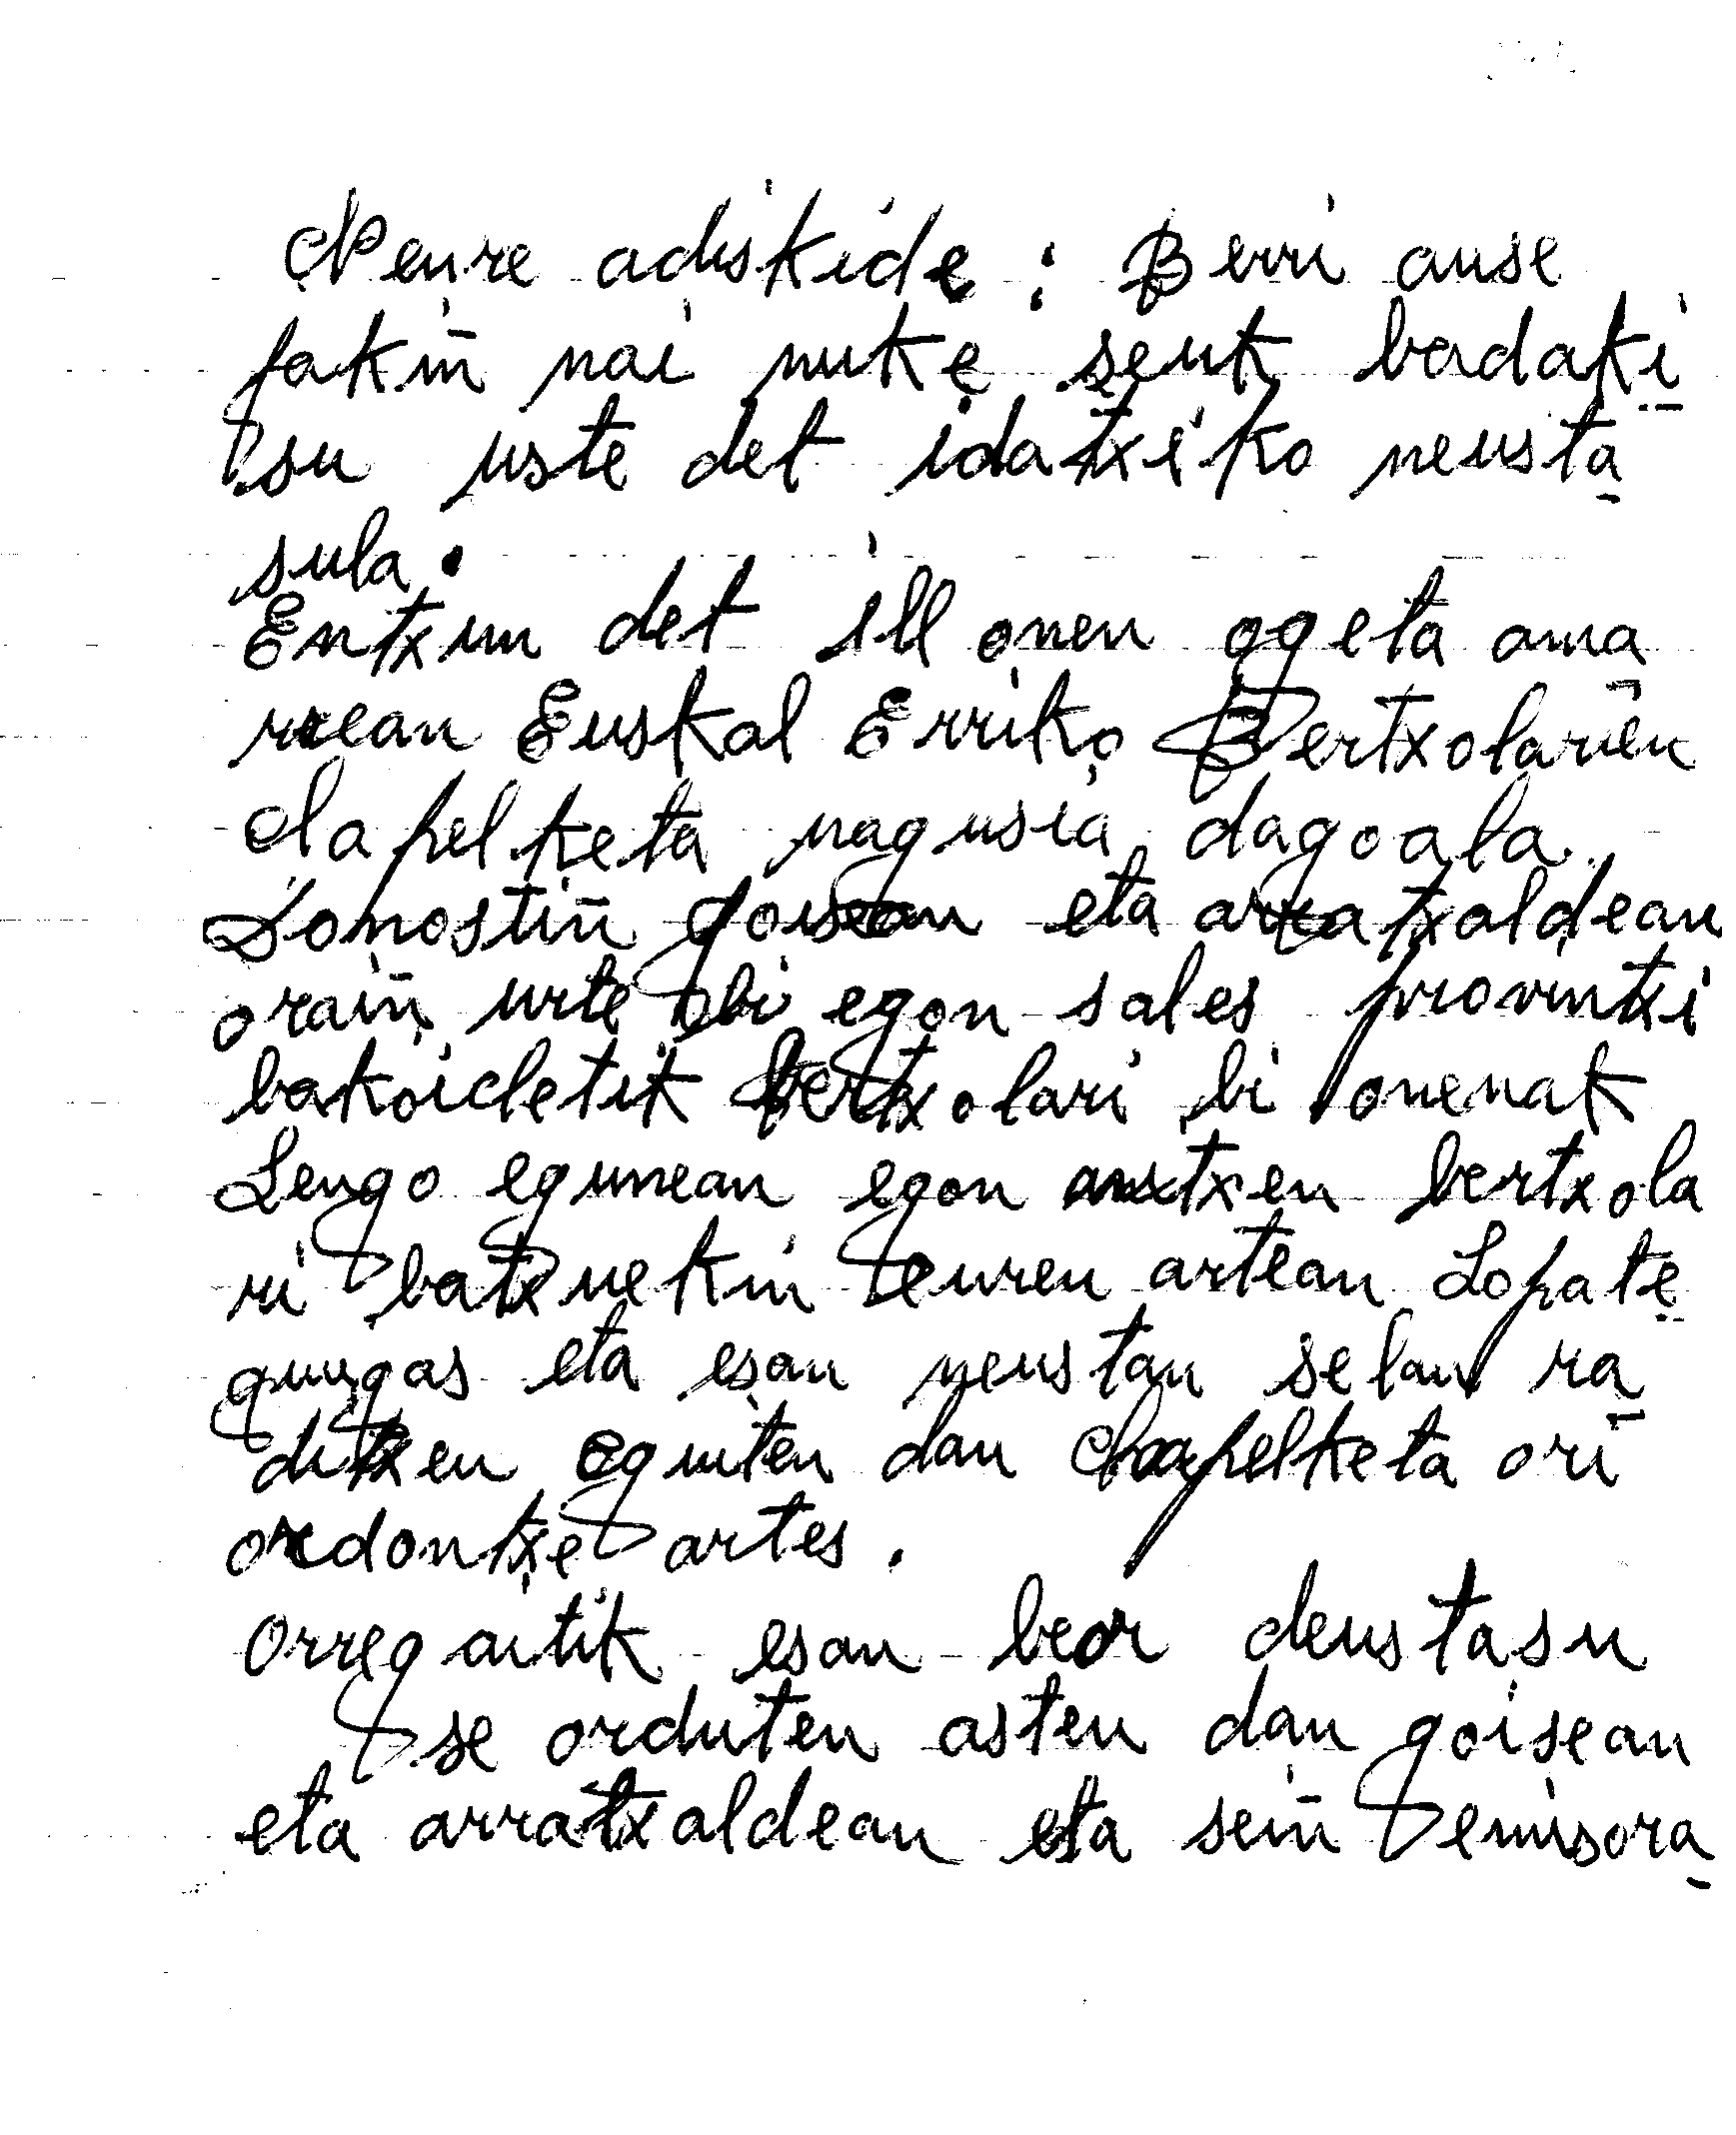 Neure adiskide: Berri ause
jakiñ nai nuke seuk badaki
su uste det idatxiko neusta
sula.
Entxun det ill onen ogeta ama
rrean Euskal Erriko Bertxolarien
Chapelketa nagusia dagoala
Donostiñ goisean eta arratxaldean
oraiñ urte bi egon sales provintxi
bakoichetik bertxolari bi onenak
Lengo egunean egon nintxen bertxola
ri batxuekin euren artean Lopate
guugas eta esan neustan selan ra
ditxen eguiten dan chapelketa ori
ordontxe artes.
Orregaitik esan bear deustasu
se orduten asten dan goisean
eta arratxaldean eta señ emisora